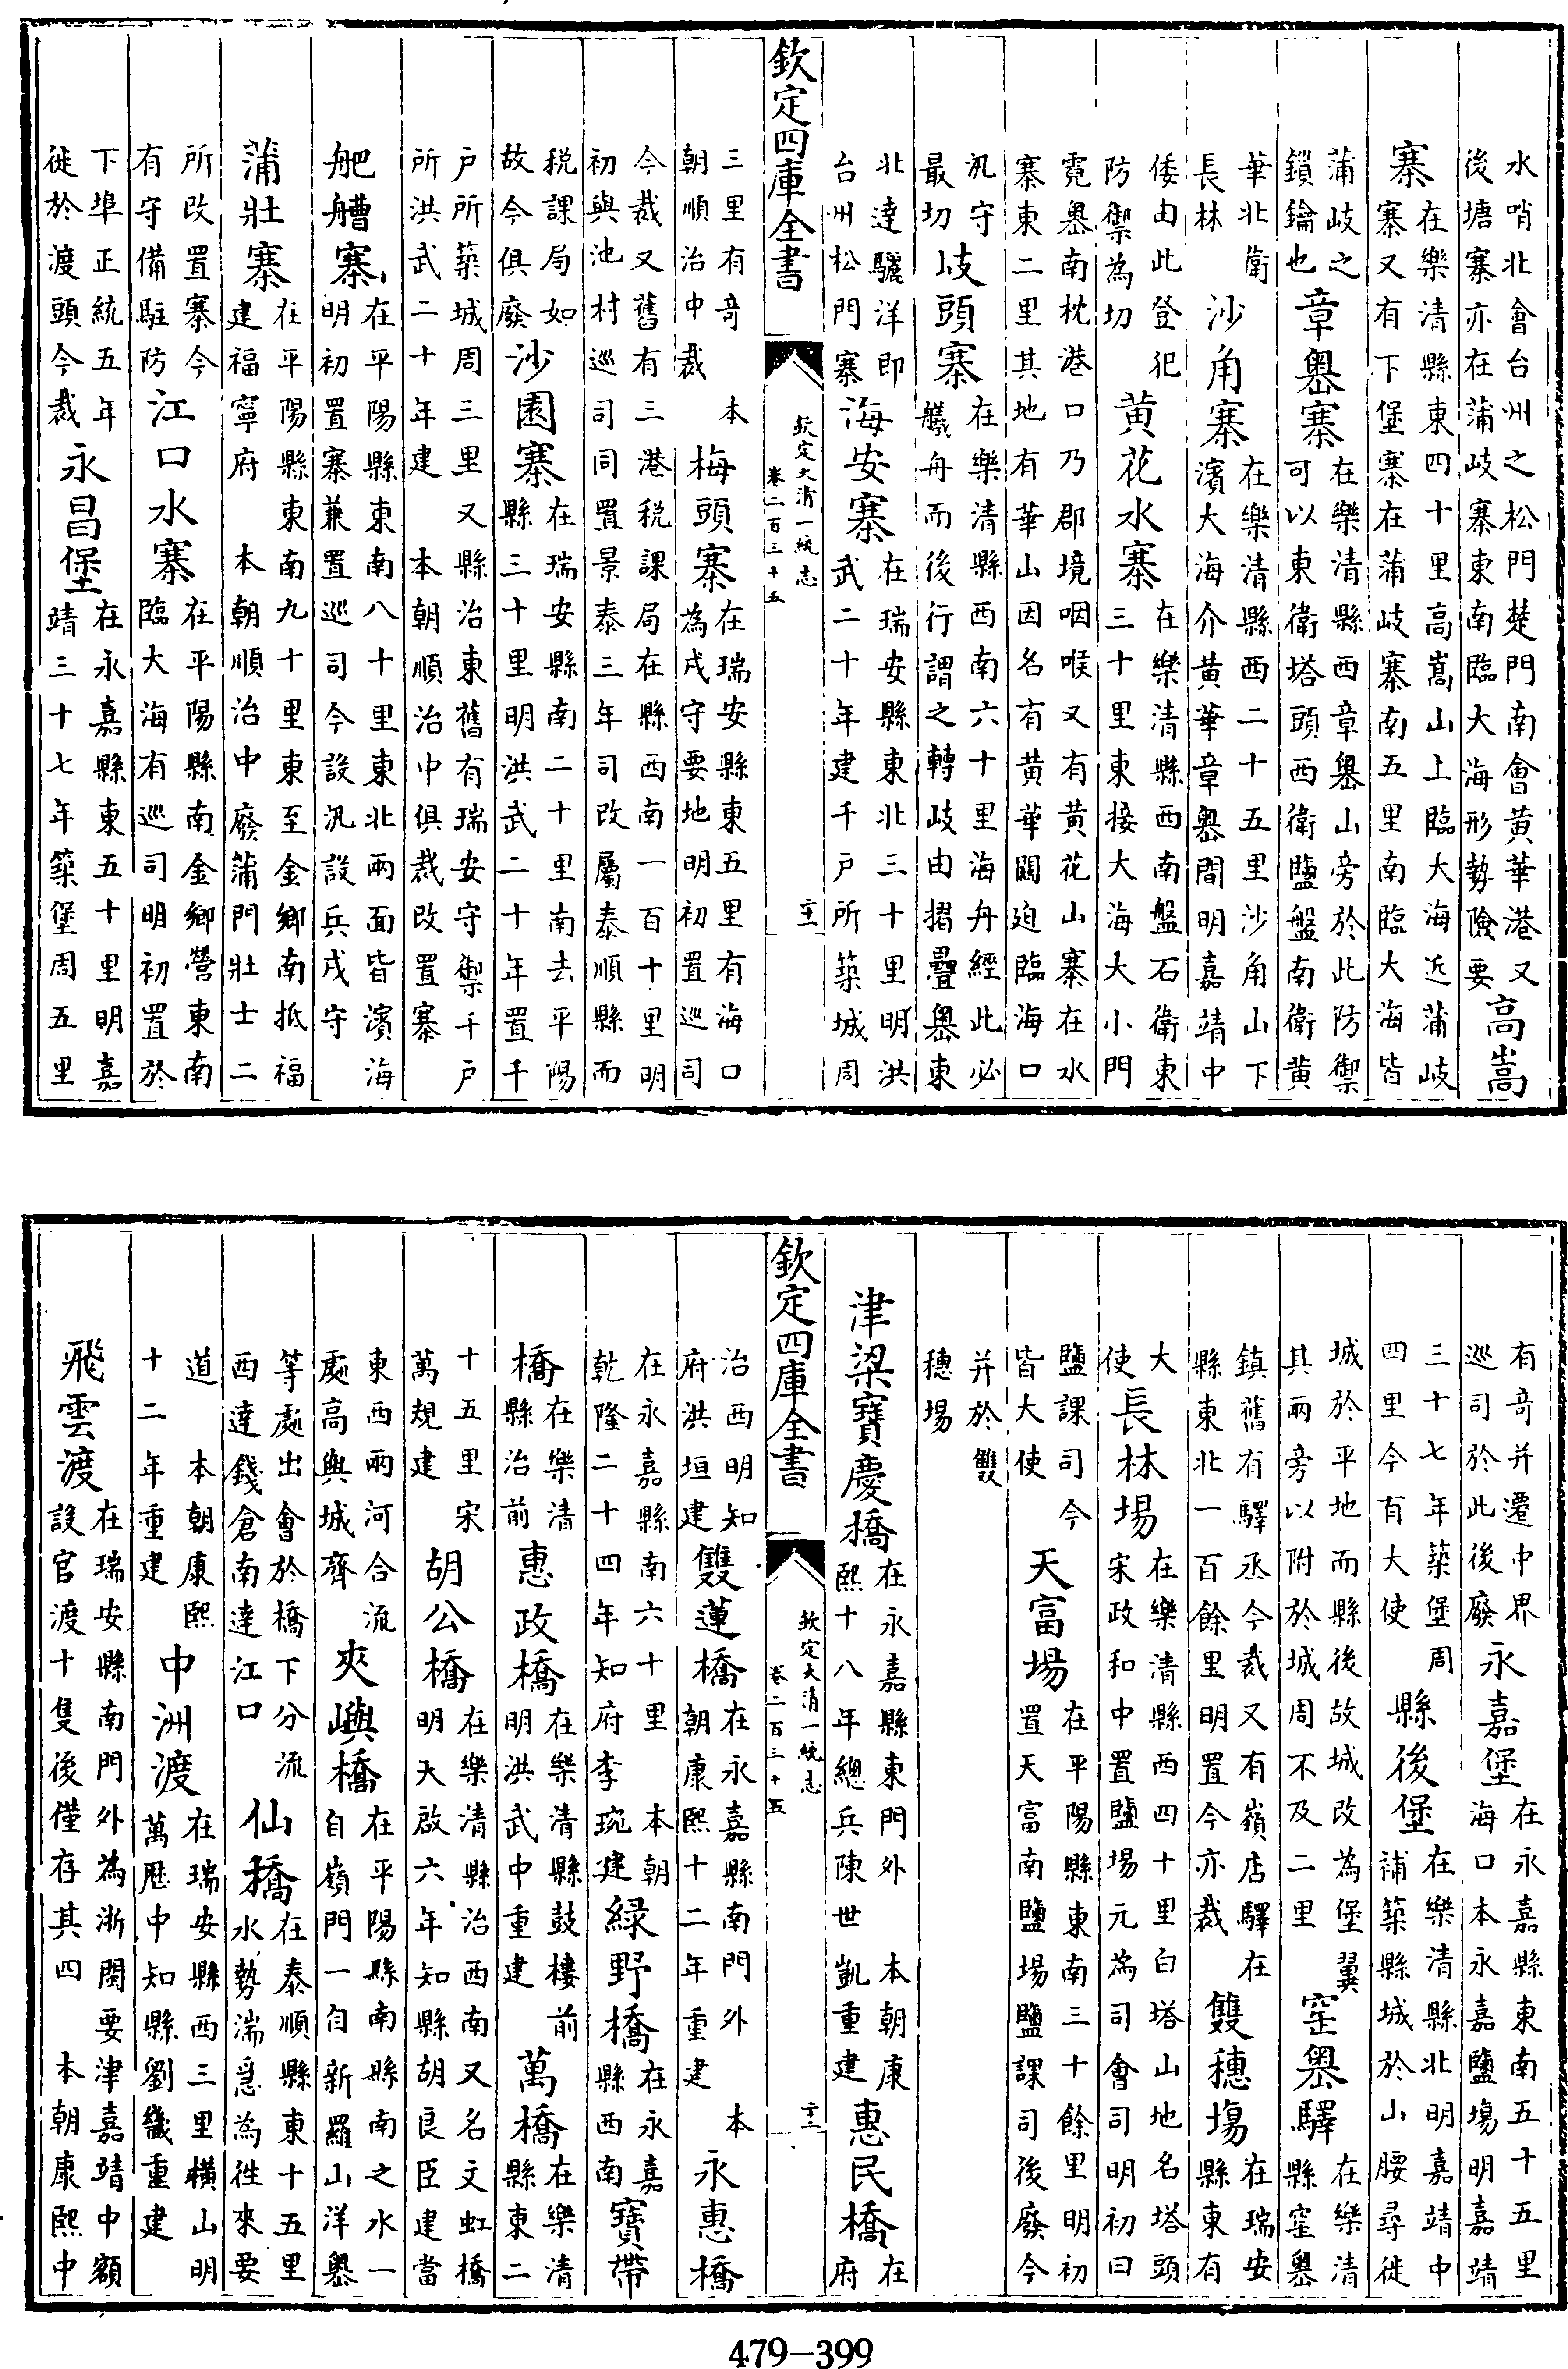 水哨北會台州之松門楚門南會黄華港又
後塘寨亦在蒲岐寨東南臨大海形勢險要高嵩
寨在樂清縣東四十里高嵩山上臨大海近蒲岐
寨又有下堡寨在蒲岐寨南五里南臨大海皆
蒲岐之
鎖鑰也章嶴寨在樂清縣西章嶴山旁於此防禦
可以東衛塔頭西衛鹽盤南衛黄
華北衛
長林沙角寨在樂清縣西二十五里沙角山下
濱大海介黄華章嶴間明嘉靖中
倭由此登犯
防禦為切黄花水寨在樂清縣西南盤石衛東
三十里東接大海大小門
霓嶴南枕港口乃郡境咽喉又有黄花山寨在水
寨東二里其地有華山因名有黄華關迫臨海口
汛守
最切岐頭寨在樂清縣西南六十里海舟經此必
艤舟而後行謂之轉岐由摺疊嶴東
北達驪洋即
台州松門寨海安寨在瑞安縣東北三十里明洪
武二十年建千戶所築城周
欽定四庫全書
欽定大清一統志
卷二百三十五
二十一
三里有奇本
朝順治中裁梅頭寨在瑞安縣東五里有海口
為戍守要地明初置巡司
今裁又舊有三港税課局在縣西南一百十里明
初與池村巡司同置景泰三年司改屬泰順縣而
税課局如
故今俱廢沙園寨在瑞安縣南二十里南去平陽
縣三十里明洪武二十年置千
戶所築城周三里又縣治東舊有瑞安守禦千戶
所洪武二十年建本朝順治中俱裁改置寨
舥艚寨在平陽縣東南八十里東北兩面皆濱海
明初置寨兼置巡司今設汛設兵戍守
蒲壯寨在平陽縣東南九十里東至金鄉南抵福
建福寧府本朝順治中廢蒲門壯士二
所改置寨今
有守備駐防江口水寨在平陽縣南金鄉營東南
臨大海有巡司明初置於
下埠正統五年
徙於渡頭今裁永昌堡在永嘉縣東五十里明嘉
靖三十七年築堡周五里
有奇并遷中界
巡司於此後廢永嘉堡在永嘉縣東南五十五里
海口本永嘉鹽塲明嘉靖
三十七年築堡周
四里今有大使縣後堡在樂清縣北明嘉靖中
補築縣城於山腰尋徙
城於平地而縣後故城改為堡翼
其兩旁以附於城周不及二里窑嶴驛在樂清
縣窑嶴
鎮舊有驛丞今裁又有嶺店驛在
縣東北一百餘里明置今亦裁雙穗塲在瑞安
縣東有
大
使長林場在樂清縣西四十里白塔山地名塔頭
宋政和中置鹽場元為司會司明初曰
鹽課司今
皆大使天富場在平陽縣東南三十餘里明初
置天富南鹽場鹽課司後廢今
并於雙
穗場
津梁寶慶橋在永嘉縣東門外本朝康
熙十八年總兵陳世凱重建惠民橋在
府
欽定四庫全書
欽定大清一統志
卷二百三十五
二十二
治西明知
府洪垣建雙蓮橋在永嘉縣南門外本
朝康熙十二年重建永惠橋
在永嘉縣南六十里本朝
乾隆二十四年知府李琬建綠野橋在永嘉
縣西南寶帶
橋在樂清
縣治前惠政橋在樂清縣鼓樓前
明洪武中重建萬橋在樂清
縣東二
十五里宋
萬規建胡公橋在樂清縣治西南又名文虹橋
明天啟六年知縣胡良臣建當
東西兩河合流
處高與城齊夾嶼橋在平陽縣南縣南之水一
自嶺門一自新羅山洋嶴
等處出會於橋下分流
西達錢倉南達江口仙橋在泰順縣東十五里
水勢湍急為徃來要
道本朝康熙
十二年重建中洲渡在瑞安縣西三里橫山明
萬歷中知縣劉畿重建
飛雲渡在瑞安縣南門外為浙閩要津嘉靖中額
設官渡十隻後僅存其四本朝康熙中
479-399